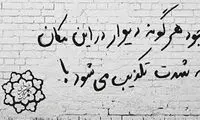 وجود هرگونه دیوار در این مکان
به شدت تکذیب می شود!